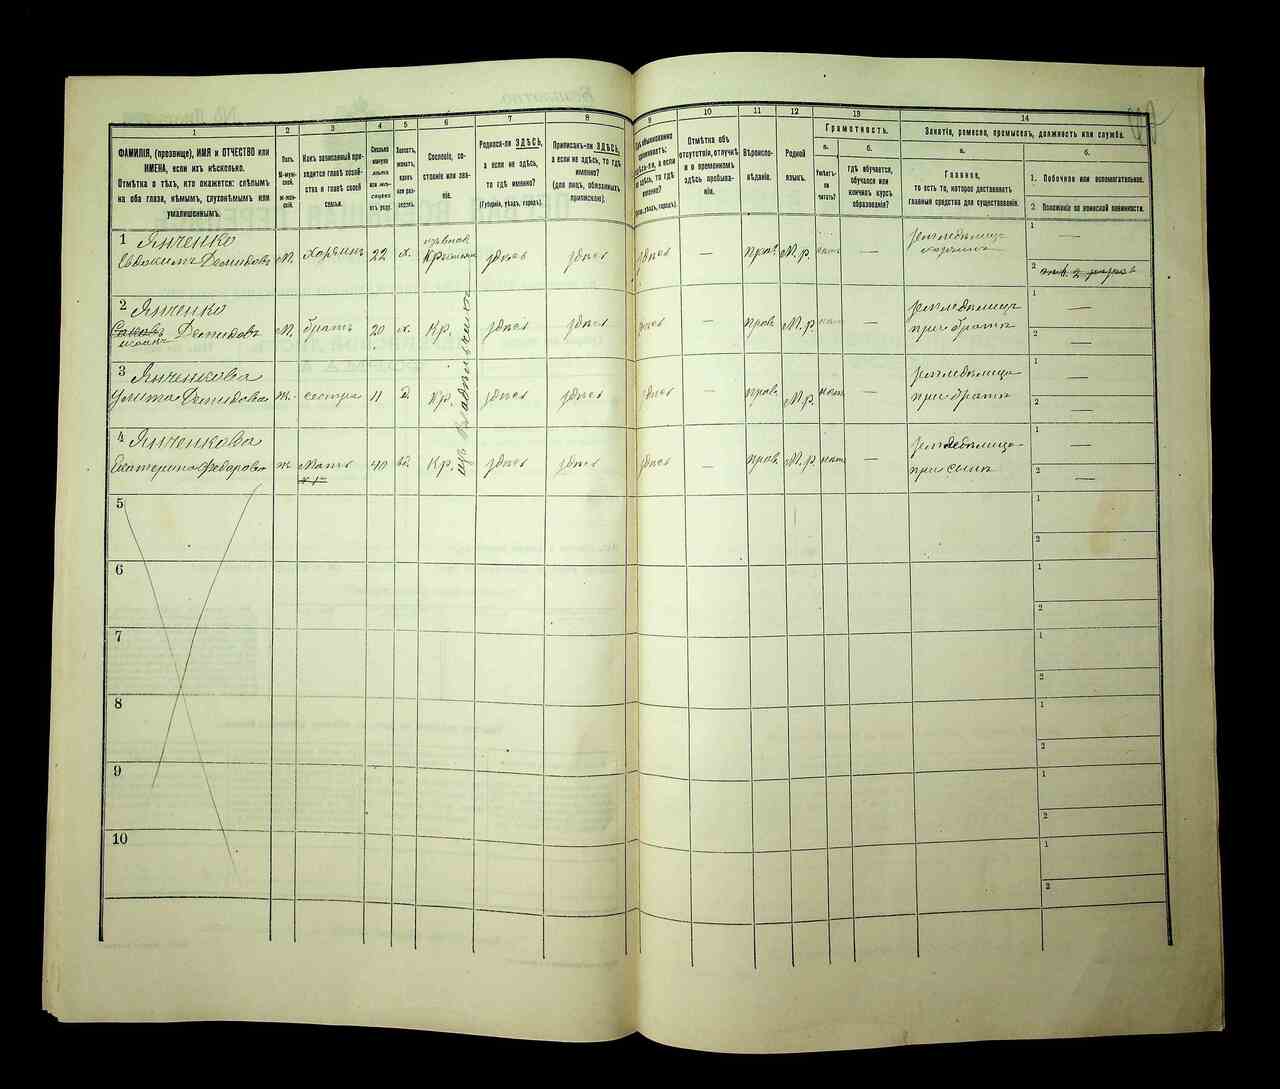 1
2
3
4
5
6
7
8
9
10
11
12
13
14
ФАМИЛІЯ, (прозвище), ИМЯ и ОТЧЕСТВО или
ИМЕНА, если ихъ нѣсколько.
Отмѣтка о тѣхъ, кто окажется: слѣпымъ
на оба глаза, нѣмымъ, глухонѣмымъ или
умалишеннымъ.
Полъ.
М-муж-
ской.
Ж-жен-
скій.
Какъ записанный при-
ходится главѣ хозяй-
ства и главѣ своей
семьи.
Сколько
минуло
лѣтъ
или мѣ-
сяцевъ
отъ роду.
Холостъ,
женатъ,
вдовъ
или раз-
веденъ.
Сословіе, со-
стояніе или зва-
ніе.
Родился-ли ЗДѢСЬ,
а если не здѣсь,
то гдѣ именно?
(Губернія, уѣздъ, городъ).
Приписанъ-ли ЗДѢСЬ,
а если не здѣсь, то гдѣ
именно?
(для лицъ, обязанныхъ
припискою).
обыкновенно
а если
здѣсь, то гдѣ
именно?
уѣздъ, городъ).
Отмѣтка объ
отсутствіи, отлучкѣ
и о временномъ
здѣсь пребыва-
ніи.
Вѣроиспо-
вѣданіе.
Родной
языкъ.
Грамотность.
а.
Умѣетъ-
ли
читать?
б.
гдѣ обучается,
обучался или
кончилъ курсъ
образованія?
Занятіе, ремесло, промыселъ, должность или служба.
а.
Главное,
то есть то, которое доставляетъ
главныя средства для существованія.
б.
1. Побочное или вспомогательное.
2 Положеніе по воинской повинности.
1 Янченко
Евдокимъ Демидовъ М. хозяинъ 22 х. здѣсь здѣсь здѣсь — прав. М.р. нѣтъ —
1 —
2
2 Янченко
Демидовъ М. братъ 20 х. Кр. здѣсь здѣсь здѣсь — прав. М.р. нѣтъ — при братѣ
1 —
2 —
3 Янченкова
Улита Демидова ж. сестра 11 д. Кр. здѣсь здѣсь здѣсь — прав. М.р. нѣтъ — при братѣ
1 —
2 —
4 Янченкова
Екатерина Федорова ж. Мать 40 вд. Кр. здѣсь здѣсь здѣсь — прав. М.р. нѣтъ — при сынѣ
1 —
2 —
5
1
2
6
1
2
7
1
2
8
1
2
9
1
2
10
1
2